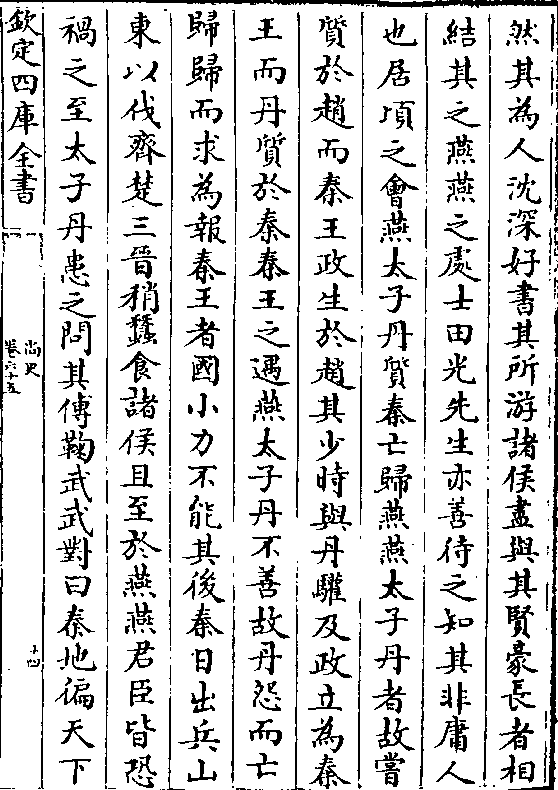 然其為人沈深好書其所游諸侯盡與其賢豪長者相
結其之燕燕之處士田光先生亦善待之知其非庸人
也居頃之會燕太子丹質秦亡歸燕燕太子丹者故嘗
質於趙而秦王政生於趙其少時與丹驩及政立為秦
王而丹質於秦秦王之遇燕太子丹不善故丹怨而亡
歸歸而求為報秦王者國小力不能其後秦日出兵山
東以伐齊楚三晉稍蠶食諸侯且至於燕燕君臣皆恐
禍之至太子丹患之問其傅鞠武武對曰秦地徧天下
欽定四庫全書
尚史
卷六十五
十四